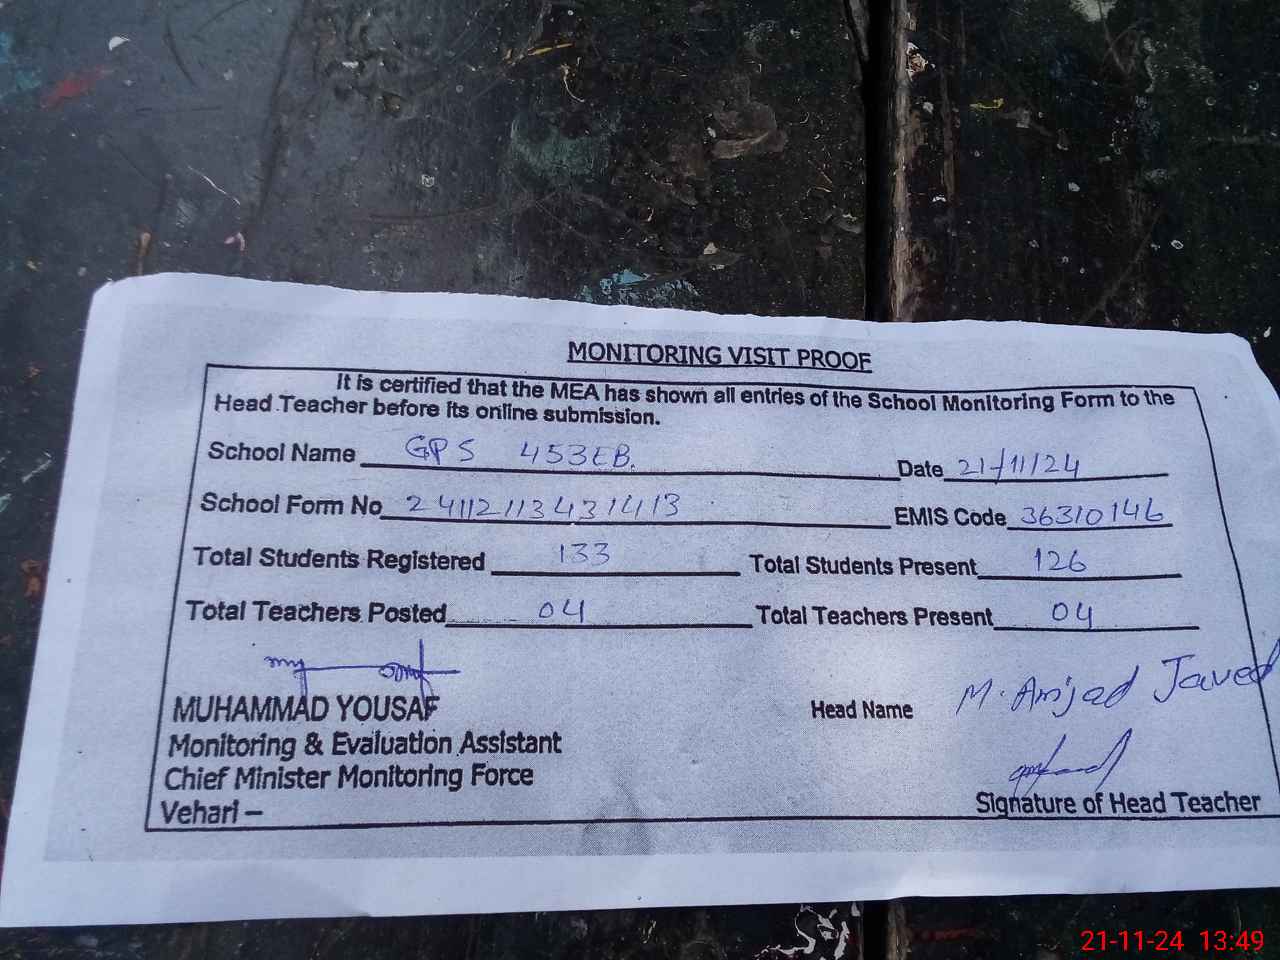 MONITORING VISIT PROOF
It is certified that the MEA has shown all entries of the School Monitoring Form to the
Head Teacher before its online submission.
School Name GPS 453EB. Date 21/11/24
School Form No 24112113431413 EMIS Code 36310146
Total Students Registered 133 Total Students Present 126
Total Teachers Posted 04 Total Teachers Present 04
MUHAMMAD YOUSAF Head Name M. Amjad Javed
Monitoring & Evaluation Assistant
Chief Minister Monitoring Force
Vehari – Signature of Head Teacher
21-11-24 13:49